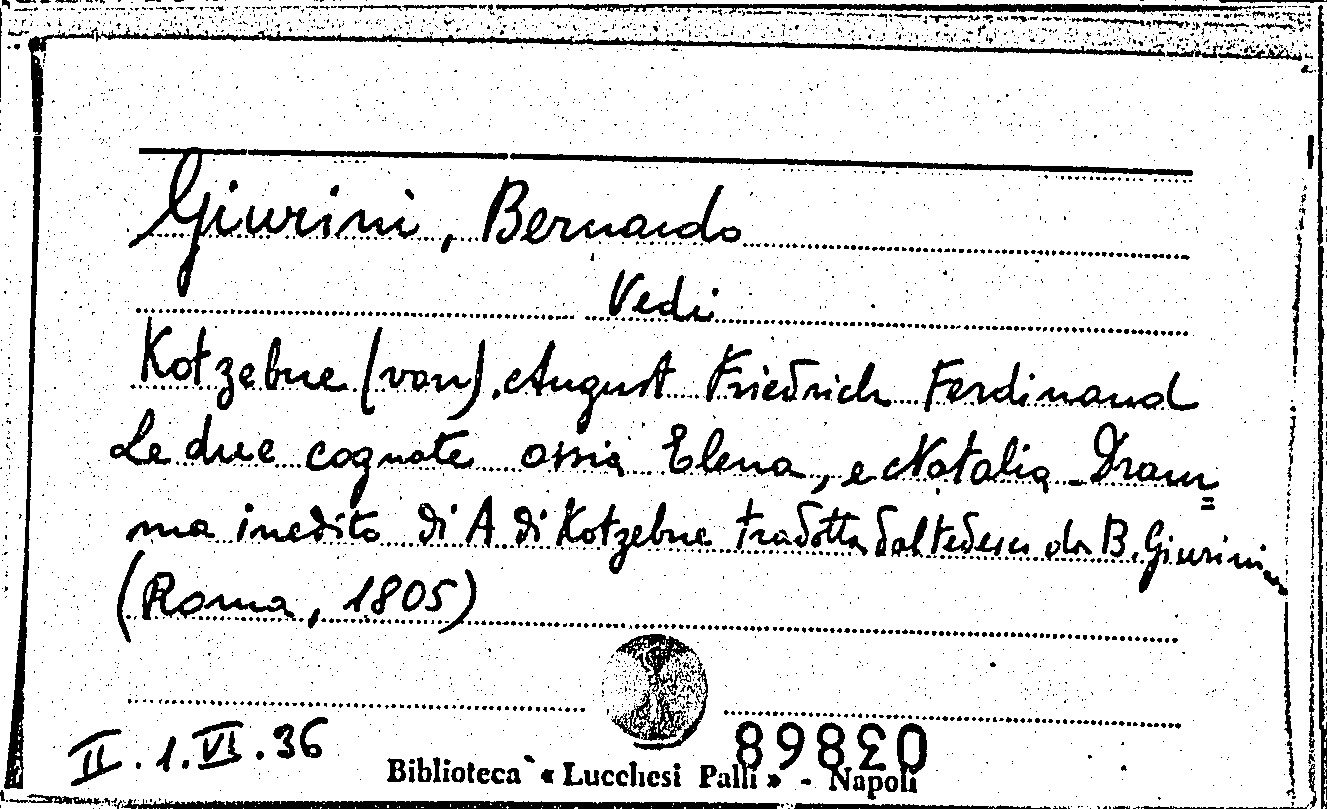 Giurini, Bernardo
Vedi
Kotzebue (von). August Friedrich Ferdinand
Le due cognate ossia Elena, e Natalia - Dram=
ma inedito di A di Kotzebue tradotta dal tedesco da B. Giurini
(Roma, 1805)
II. 1. VI. 36
Biblioteca « Lucchesi Palli » - Napoli